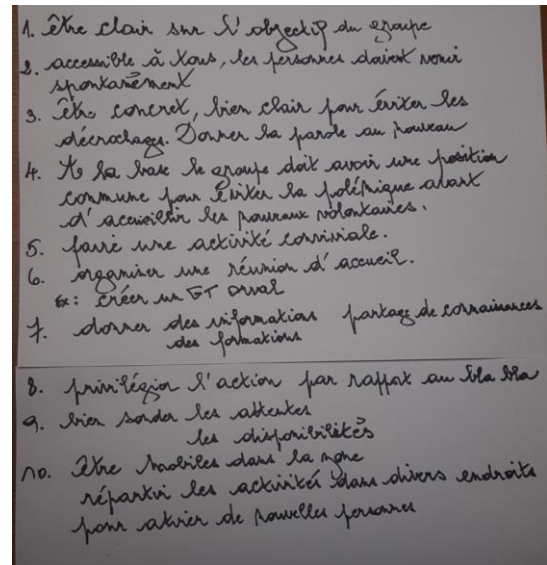 1. être clair sur l'objectif du groupe
2. accessible à tous, les personnes doivent venir
spontanément
3. être concret, bien clair pour éviter les
décrochages. Donner la parole au nouveau
4. A la base le groupe doit avoir une position
commune pour éviter la polémique avant
d'accueillir les nouveaux volontaires.
5. faire une activité conviviale.
6. organiser une réunion d'accueil.
Ex: créer un GT Orval
7. donner des informations partage de connaissances
des formations
8. privilégier l'action par rapport au bla bla
9. bien sonder les attentes
les disponibilités
10. être mobiles dans la
répartir les activités dans divers endroits
pour attirer de nouvelles personnes